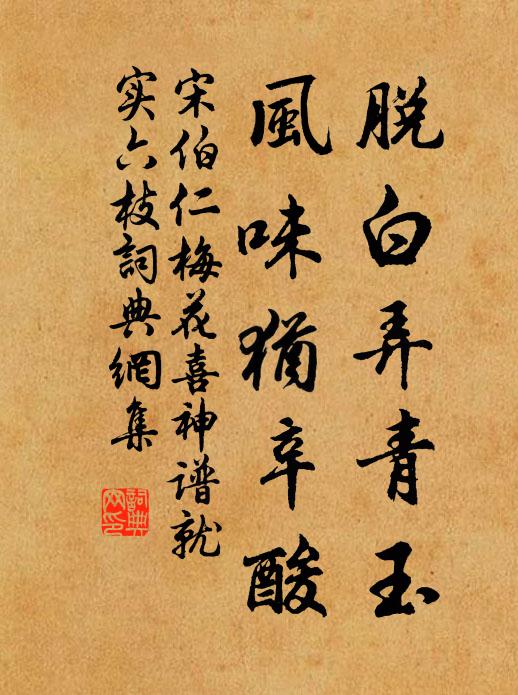 脱白弄青玉
風味猶辛酸
宋伯仁梅花喜神谱就
实六枝詞典網集
詞典网印